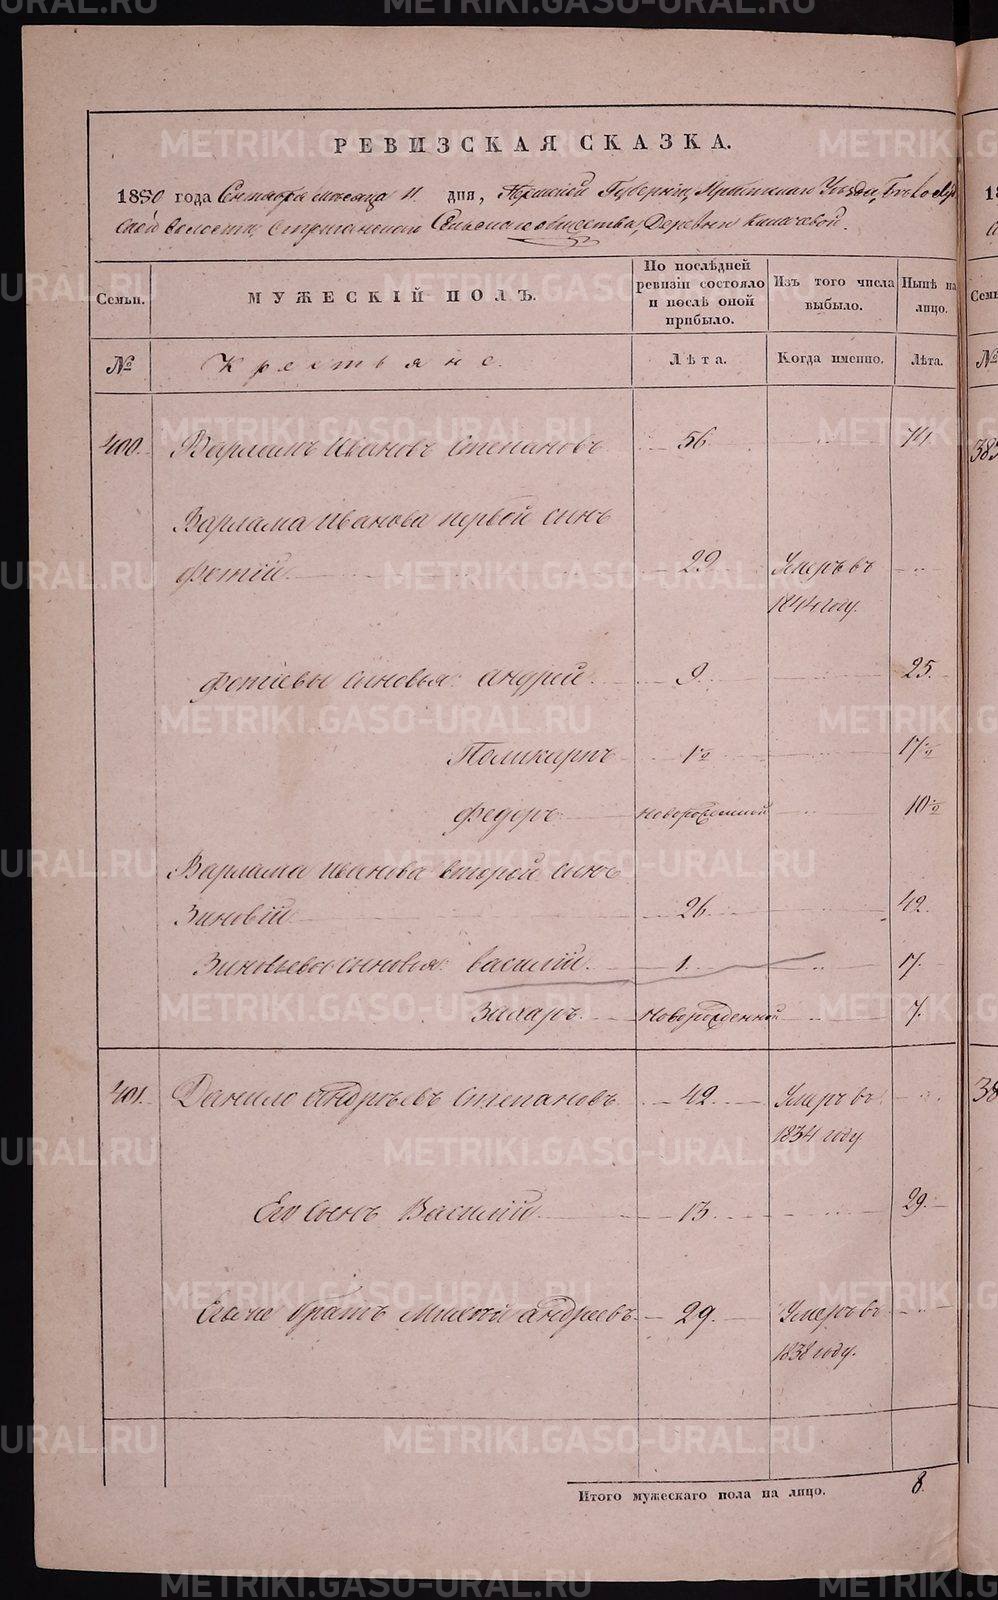 METRIKI.GASO-URAL.RU
РЕВИЗСКАЯ СКАЗКА.
1850 года Сентября месяца 11 дня, Пермской Губернiи, Ирбитскаго Уѣзда,
ской волости, Стриганскаго Сельскаго общества, Деревни Кекачевой.
Семьи.
МУЖЕСКIЙ ПОЛЪ.
По послѣдней ревизiи состояло и послѣ оной прибыло.
Изъ того числа выбыло.
Нынѣ на лицо.
№
Крестьяне.
Лѣта.
Когда именно.
Лѣта.
400. Варламъ Ивановъ Степановъ 56. 74.
Варлама Иванова первой сынъ
Фотiй 29 Умеръ въ
1844 году.
Фотiевы сыновья: Андрей 9. 25.
Поликарпъ 1 17
Федоръ новорожденной 10
Варлама Иванова второй сынъ
Зиновiй 26 42
Зиновьевы сыновья: Василiй 1. 17.
Захаръ Новорожденной 7.
401. Данило Андрѣевъ Степановъ 42. Умеръ въ
1834 году
Его сынъ Василiй 13. 29.
Его же братъ Михей Андреевъ 29. Умеръ въ
1838 году.
Итого мужескаго пола на лицо. 8.